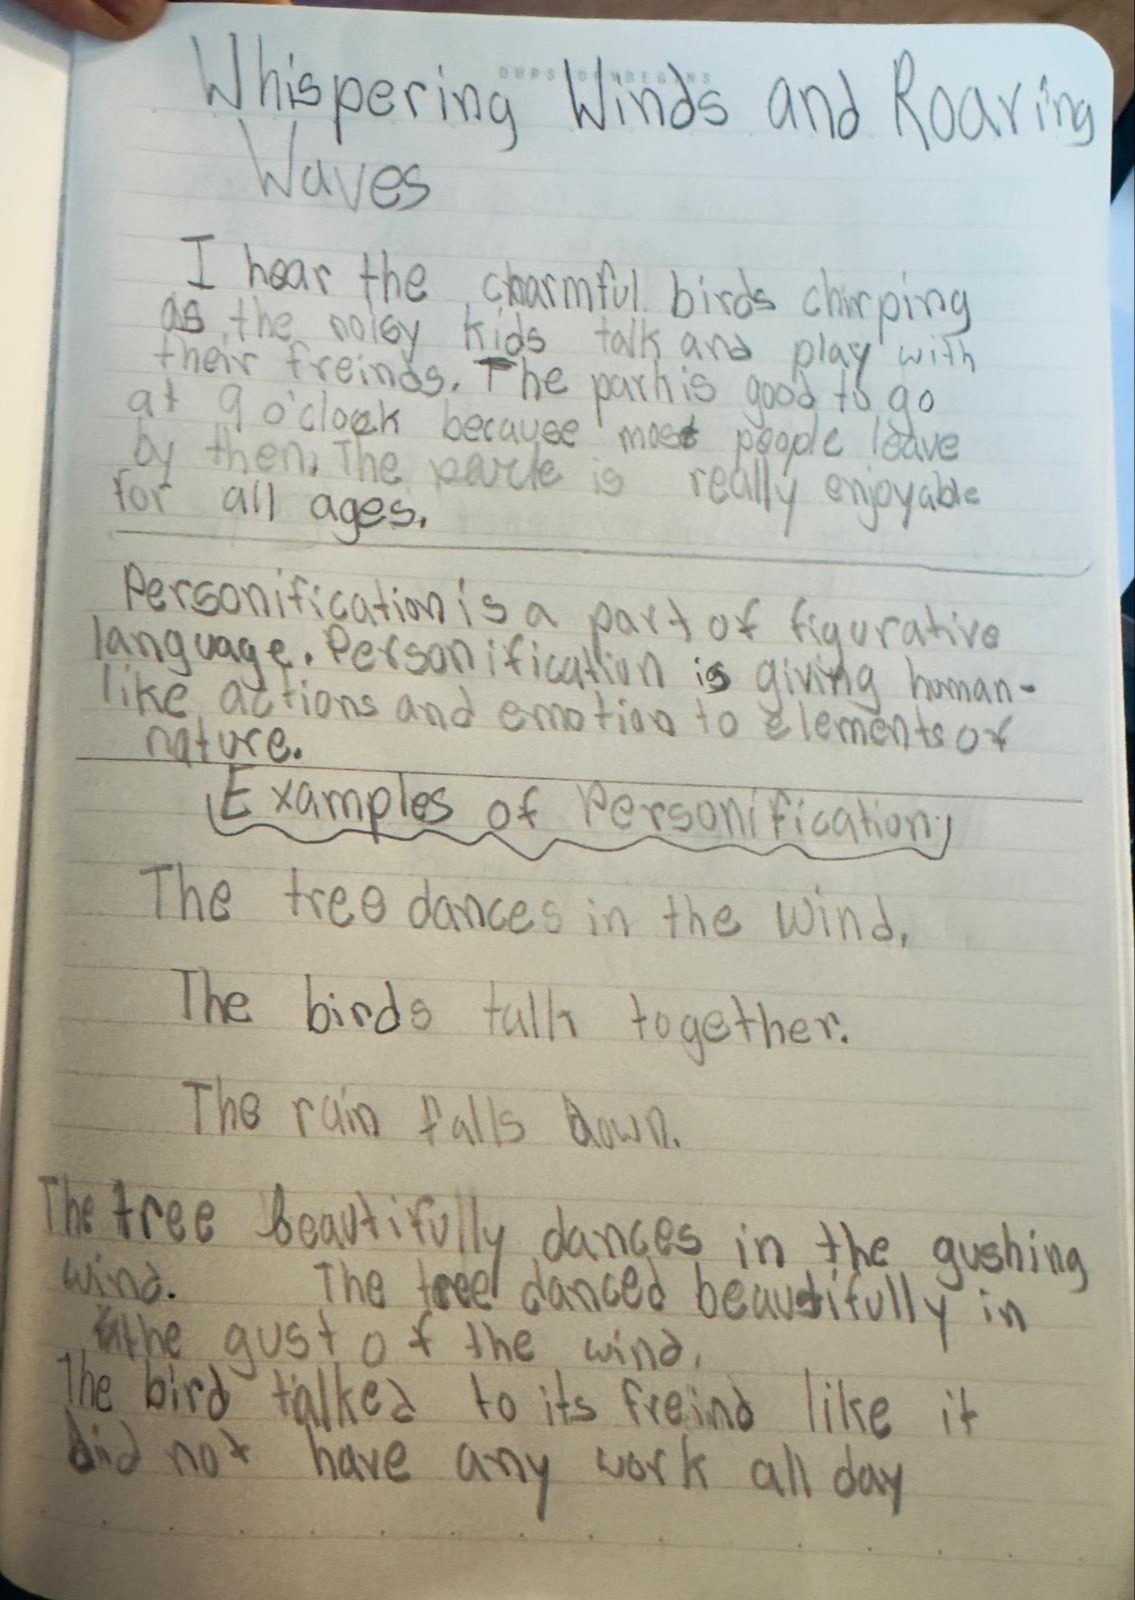 Whispering Winds and Roaring
Waves
I hear the charmful birds chirping
as the noisy kids talk and play with
their freinds. The park is good to go
at 9 o'clock because most people leave
by then. The parck is really enjoyable
for all ages.
Personification is a part of figurative
language. Personification is giving human-
like actions and emotion to elements of
nature.
Examples of Personification
The tree dances in the wind.
The birds talk together.
The rain falls down.
The tree beautifully dances in the gushing
wind. The tree danced beautifully in
the gust of the wind.
The bird talked to its freind like it
did not have any work all day